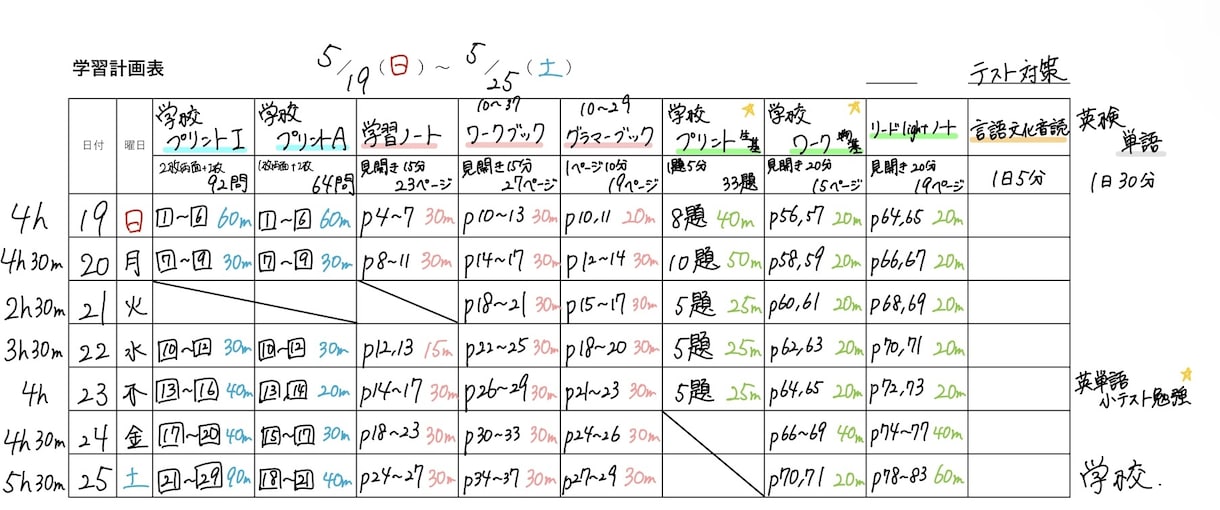 学習計画表 5/19(日)~5/25(土) テスト対策
日付 曜日 学校プリントI 学校プリントA 学習ノート 10~37 ワークブック 10~29 グラマーブック 学校プリント 生基 学校ワーク 物基 リードlightノート 言語文化音読 英検単語
2枚両面+2枚 92問 1枚両面+2枚 64問 見開き15分 23ページ 見開き15分 27ページ 1ページ10分 19ページ 1題5分 33題 見開き20分 15ページ 見開き20分 19ページ 1日5分 1日30分
4h 19 日 1~6 60m 1~6 60m p4~7 30m p10~13 30m p10,11 20m 8題 40m p56,57 20m p64,65 20m
4h30m 20 月 7~9 30m 7~9 30m p8~11 30m p14~17 30m p12~14 30m 10題 50m p58,59 20m p66,67 20m
2h30m 21 火 p18~21 30m p15~17 30m 5題 25m p60,61 20m p68,69 20m
3h30m 22 水 10~12 30m 10~12 30m p12,13 15m p22~25 30m p18~20 30m 5題 25m p62,63 20m p70,71 20m
4h 23 木 13~16 40m 13,14 20m p14~17 30m p26~29 30m p21~23 30m 5題 25m p64,65 20m p72,73 20m 英単語小テスト勉強
4h30m 24 金 17~20 40m 15~17 30m p18~23 30m p30~33 30m p24~26 30m p66~69 40m p74~77 40m
5h30m 25 土 21~29 90m 18~21 40m p24~27 30m p34~37 30m p27~29 30m p70,71 20m p78~83 60m 学校.